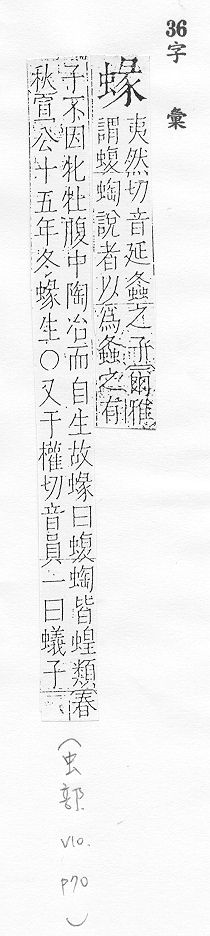 36字彙
蝝
夷然切音延螽之子爾雅
謂蝮蜪說者以爲螽之有
子不因牝牡腹中陶冶而自生故蝝曰蝮蜪皆蝗類春
秋宣公十五年冬蝝生○又于權切音員一曰蟻子
(虫部 V10. P70)